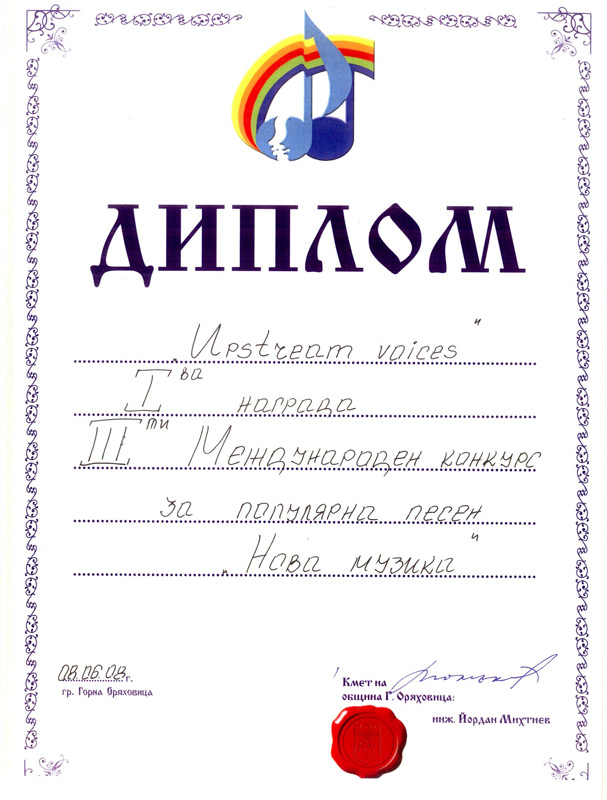 ДИПЛОМ
„Upstream voices“
I ва награда
III ти Международен конкурс
за популярна песен
„Нова музика“
08.06.08.г.
гр. Горна Оряховица
Кмет на
община Г. Оряховица:
инж. Йордан Михтиев